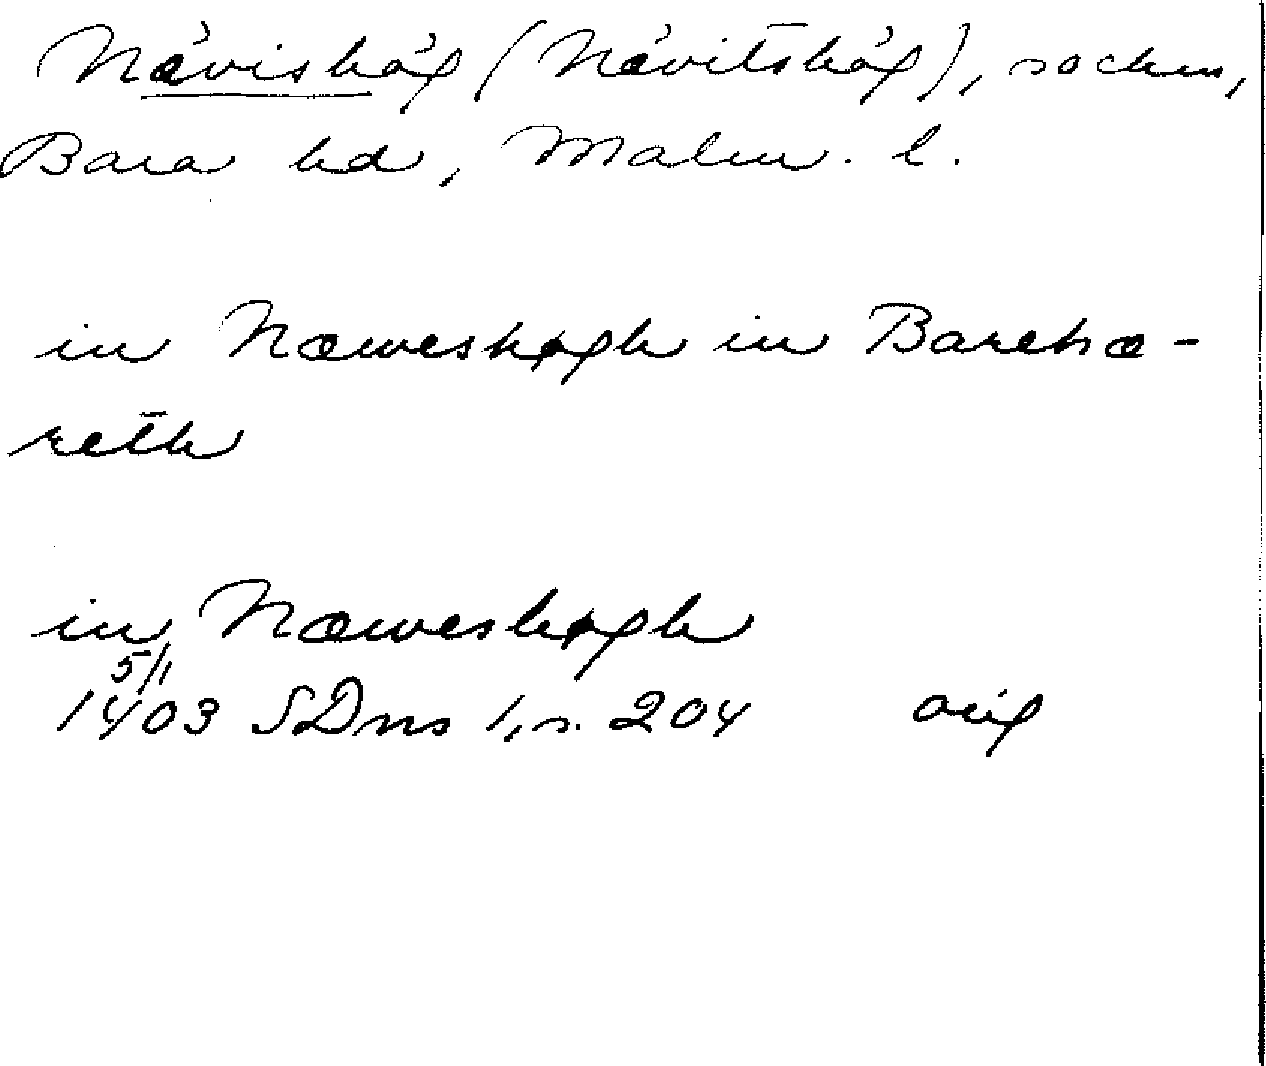 Nävishög (Nävitshög), socken,
Bara hd, Malm. l.
in Næweshøgh in Barehæ-
reth
in Næweshøgh
5/1
1403 SDns 1, s. 204 orig